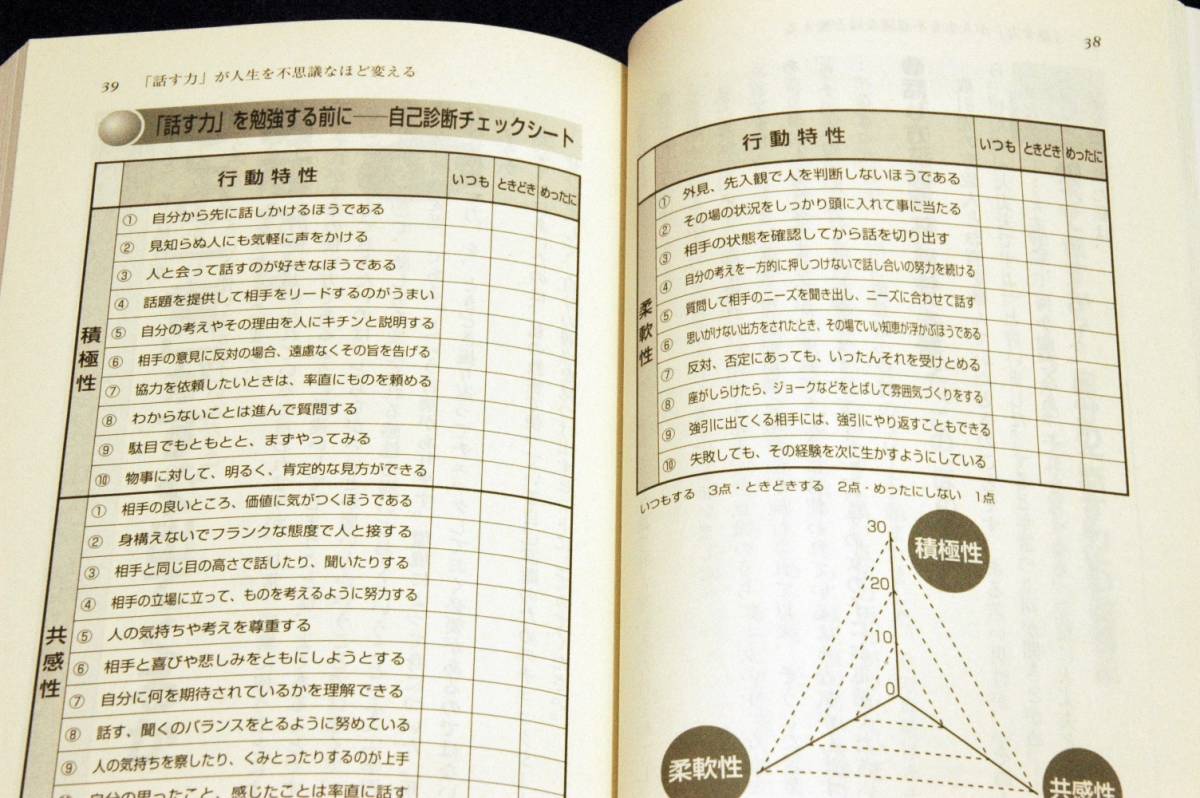 39 「話す力」が人生を不思議なほど変える
「話す力」を勉強する前に──自己診断チェックシート
行動特性 いつも ときどき めったに
積極性
① 自分から先に話しかけるほうである
② 見知らぬ人にも気軽に声をかける
③ 人と会って話すのが好きなほうである
④ 話題を提供して相手をリードするのがうまい
⑤ 自分の考えやその理由を人にキチンと説明する
⑥ 相手の意見に反対の場合、遠慮なくその旨を告げる
⑦ 協力を依頼したいときは、率直にものを頼める
⑧ わからないことは進んで質問する
⑨ 駄目でもともとと、まずやってみる
⑩ 物事に対して、明るく、肯定的な見方ができる
共感性
① 相手の良いところ、価値に気がつくほうである
② 身構えないでフランクな態度で人と接する
③ 相手と同じ目の高さで話したり、聞いたりする
④ 相手の立場に立って、ものを考えるように努力する
⑤ 人の気持ちや考えを尊重する
⑥ 相手と喜びや悲しみをともにしようとする
⑦ 自分に何を期待されているかを理解できる
⑧ 話す、聞くのバランスをとるように努めている
⑨ 人の気持ちを察したり、くみとったりするのが上手
自分の思ったこと、感じたことは率直に話す
38
行動特性 いつも ときどき めったに
柔軟性
① 外見、先入観で人を判断しないほうである
② その場の状況をしっかり頭に入れて事に当たる
③ 相手の状態を確認してから話を切り出す
④ 自分の考えを一方的に押しつけないで話し合いの努力を続ける
⑤ 質問して相手のニーズを聞き出し、ニーズに合わせて話す
⑥ 思いがけない出方をされたとき、その場でいい知恵が浮かぶほうである
⑦ 反対、否定にあっても、いったんそれを受けとめる
⑧ 座がしらけたら、ジョークなどをとばして雰囲気づくりをする
⑨ 強引に出てくる相手には、強引にやり返すこともできる
⑩ 失敗しても、その経験を次に生かすようにしている
いつもする 3点・ときどきする 2点・めったにしない 1点
30
積極性
20
10
0
柔軟性
共感性